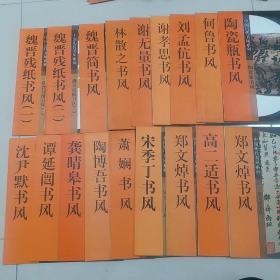 魏晋残纸书风（一）
魏晋残纸书风（二）
魏晋简书风
林散之书风
谢无量书风
谢孝思书风
刘孟伉书风
何鲁书风
陶瓷瓶书风
沈尹默书风
谭延闿书风
龚晴皋书风
陶博吾书风
萧娴书风
宋季丁书风
郑文焯书风
高二适书风
郑文焯书风